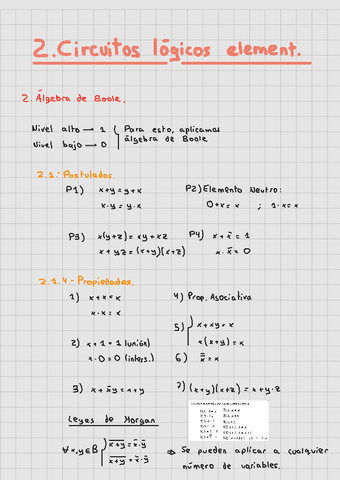 2. Circuitos lógicos element.
2. Álgebra de Boole.
Nivel alto → 1
Nivel bajo → 0
Para esto, aplicamos
álgebra de Boole
2.1.- Postulados.
P1) x+y = y+x
x·y = y·x
P2) Elemento Neutro:
0+x = x ; 1·x = x
P3) x(y+z) = xy + xz
x + yz = (x+y)(x+z)
P4) x + x̄ = 1
x · x̄ = 0
2.1.4- Propiedades.
1) x+x = x
x·x = x
4) Prop. Asociativa
2) x+1 = 1 (unión)
x·0 = 0 (inters.)
5) x+xy = x
x(x+y) = x
6) x̿ = x
3) x + x̄y = x+y
7) (x+y)(x+z) = x+y·z
Leyes de Morgan
∀x,y∈B
x̅+̅y̅ = x̄·ȳ
x̅+̅y̅ = x̄·ȳ
⇒ Se pueden aplicar a cualquier
número de variables.